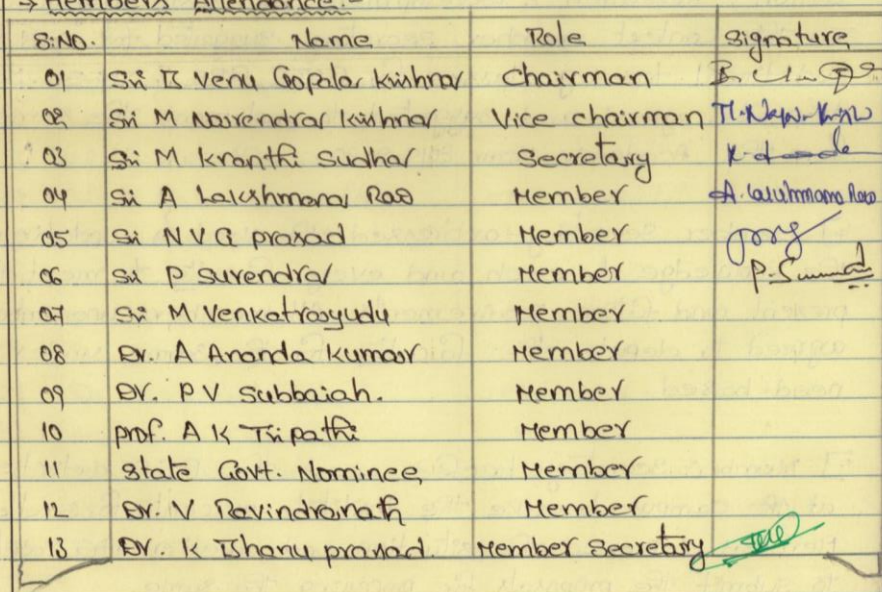 → Members Attendance:-
S.NO. Name Role Signature
01 Sri B Venu Gopala Krishna Chairman
02 Sri M Narendra Krishna Vice chairman
03 Sri M Kranthi Sudha Secretary
04 Sri A Lakshmana Rao Member A. Lakshmana Rao
05 Sri N V G prasad Member
06 Sri P Surendra Member
07 Sri M Venkatrayudu Member
08 Dr. A Ananda Kumar Member
09 Dr. P V Subbaiah. Member
10 prof. A K Tripathi Member
11 State Govt. Nominee Member
12 Dr. V Ravindranath Member
13 Dr. K Bhanu prasad Member Secretary